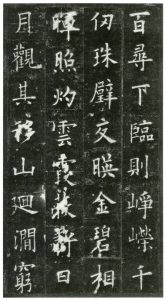 百尋下臨則崢嶸千
仞珠璧交暎金碧相
暉照灼雲霞蔽虧日
月觀其移山迴澗窮